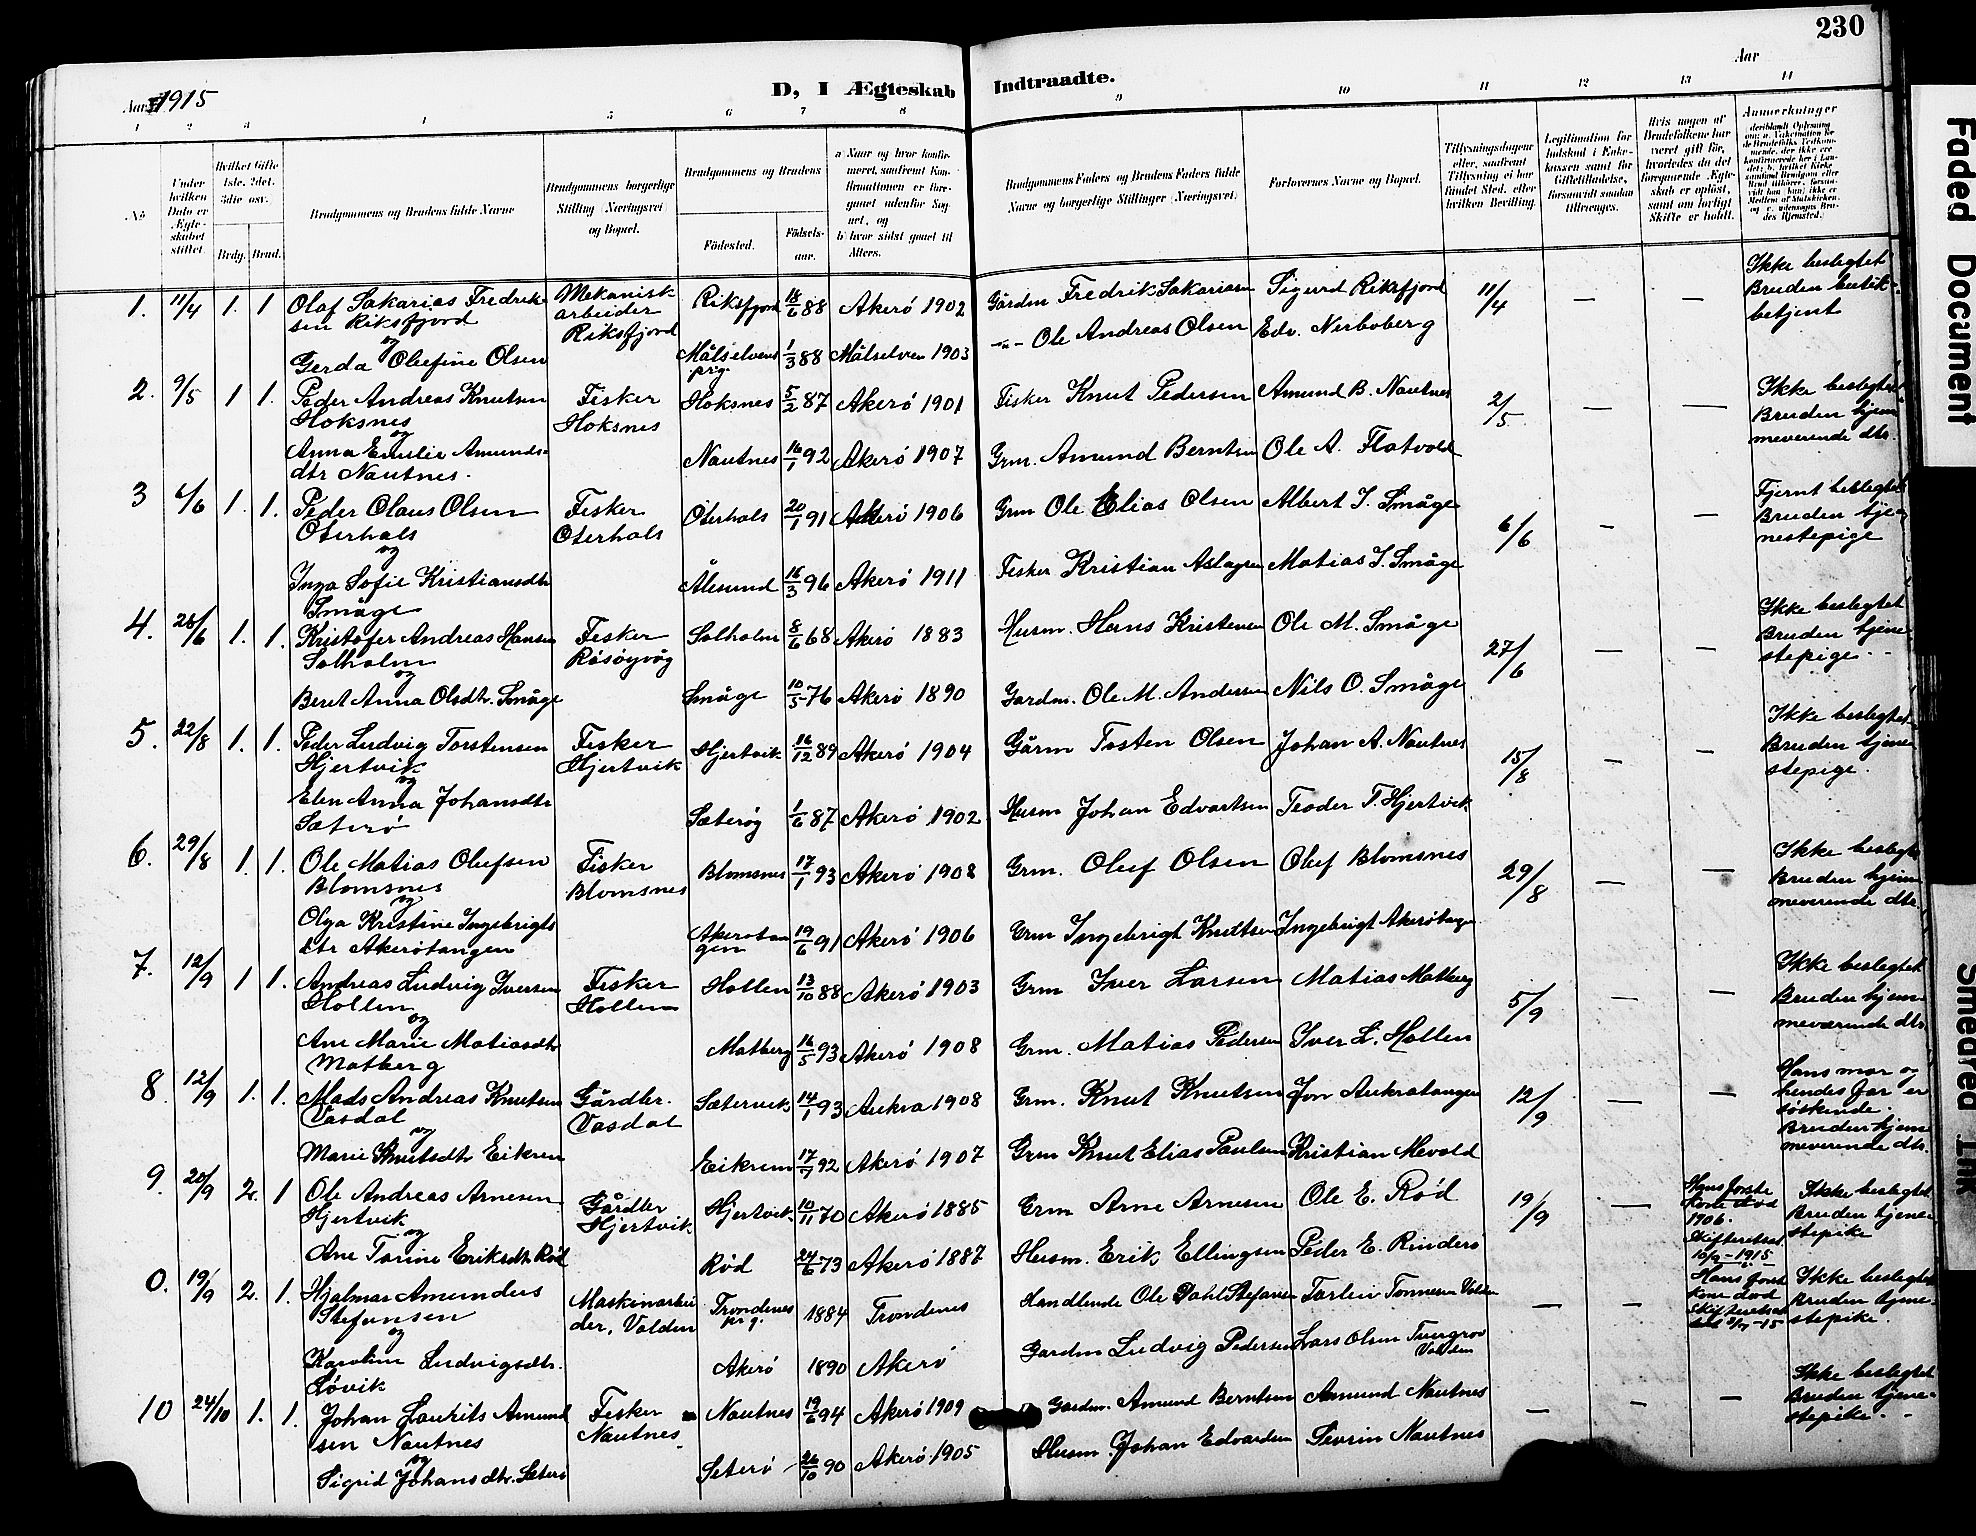 230
Aar 1915
D, I Ægteskab Indtraadte.
Aar
1 2 3 4 5 6 7 8 9 10 11 12 13 14
No
Under hvilken Dato er Ægteskabet stiftet.
Hvilket Gifte 1ste, 2det, 3die osv.
Brdg. Brud.
Brudgommens og Brudens fulde Navne
Brudgommens borgerlige Stilling (Næringsvei) og Bopæl.
Brudgommens og Brudens
Födested.
Födselsaar.
a) Naar og hvor konfirmeret, saafremt Konfirmationen er foregaaet udenfor Sognet, og
b) hvor sidst gaaet til Alters.
Brudgommens Faders og Brudens Faders fulde Navne og borgerlige Stillinger (Næringsvei).
Forlovernes Navne og Bopæl.
Tillysningsdagene eller, saafremt Tillysning ei har fundet Sted, efter hvilken Bevilling.
Legitimation for Indskud i Enkekassen samt for Giftetilladelse, forsaavidt saadan tiltrænges.
Hvis nogen af Brudefolkene har været gift før, hvorledes da det foregaaende Ægteskab er opløst, samt om lovligt Skifte er holdt.
Anmerkninger
1. 11/4 1. 1 Olaf Sakarias Fredriksen Riksfjord
og
Gerda Olufine Olsen
Mekanisk arbeider Riksfjord
Riksfjord 18/6 88 Akerö 1902 Gårdm Fredrik Sakariasen Sigurd Riksfjord 11/4 — —
Målselvens prg. 1/3 88 Målselven 1903 -"- Ole Andreas Olsen Edv. Nerboberg
Ikke beslegtet
Bruden butikbetjent
2. 9/5 1 1. Peder Andreas Knutsen Hoksnes
og
Anna Emilie Amundsdtr Nautnes.
Fisker Hoksnes
Hoksnes 5/2 87 Akerö 1901 Fisker Knut Pedersen Amund B. Nautnes 2/5 — —
Nautnes 16/1 92 Akerö 1907 Grm. Amund Berntsen Ole A. Flatvold
Ikke beslegtet
Bruden hjemmeverende dtr.
3 6/6 1. 1. Peder Olaus Olsen Oterhals
og
Inga Sofie Kristiansdtr Småge
Fisker Oterhals
Oterhals 20/1 91 Akerö 1906 Grm Ole Elias Olsen Albert J. Småge 6/6 - —
Ålesund 16/3 96 Akerö 1911 Fisker Kristian Aslagsen Matias J. Småge
Fjernt beslegtet
Bruden tjenestepige
4. 26/6 1. 1. Kristofer Andreas Hansen Solholm
og
Beret Anna Olsdtr. Småge
Fisker Rösöyvåg
Solholm 8/6 68 Akerö 1883 Husm. Hans Kristensen Ole M. Småge 27/6 — —
Småge 10/5 76 Akerö 1890 Gardm. Ole M. Andersen Nils O. Småge
Ikke beslegtet
Bruden tjenestepige
5. 22/8 1. 1. Peder Ludvig Torstensen Hjertvik
og
Elen Anna Johansdtr Sæterö
Fisker Hjertvik
Hjertvik 16/12 89 Akerö 1904 Gårm Tosten Olsen Johan A. Nautnes 15/8 — —
Sæteröy 1/6 87 Akerö 1902 Husm Johan Edvartsen Teoder T. Hjertvik
Ikke beslegtet
Bruden tjenestepige.
6. 29/8 1. 1. Ole Matias Olufsen Blomsnes
og
Olga Kristine Ingebrigtsdtr Akerötangen
Fisker Blomsnes
Blomsnes 17/1 93 Akerö 1908 Grm. Oluf Olsen Oluf Blomsnes 29/8 — —
Akerötangen 19/6 91 Akerö 1906 Grm Ingebrigt Knudtsen Ingebrigt Akerötangen
Ikke beslegtet
Bruden hjemmeverende dtr.
7. 12/9 1 1. Andreas Ludvig Iversen Hollen
og
Ane Marie Matiasdtr Matberg
Fisker Hollen
Hollen 13/10 88 Akerö 1903 Grm Iver Larsen Matias Matberg 5/9 — —
Matberg 16/5 93 Akerö 1908 Grm. Matias Pedersen Iver L. Hollen
Ikke beslegtet
Bruden hjemmeværende dtr.
8. 12/9 1. 1. Mads Andreas Knutsen Vasdal
og
Marie Knutsdtr Eikrem
Gårdbr. Vasdal
Sætervik 14/1 93 Aukra 1908 Grm. Knut Knutsen Jon Aukratangen 12/9 — —
Eikrem 17/7 92 Akerö 1907 Grm Knut Elias Paulsen Kristian Mevold
Hans mor og hendes far er söskende.
Bruden hjemmeverende dtr.
9. 20/9 2. 1 Ole Andreas Arnesen Hjertvik
og
Ane Torine Eriksdtr Röd
Gårdbr Hjertvik
Hjertvik 10/11 70 Akerö 1885 Grm Arne Arnesen Ole E. Röd 19/9 —
Röd 24/6 73 Akerö 1887 Husm. Erik Ellingsen Peder E. Rinderö
Hans forste kone död 1906. Skifteretsat. 10/9 - 1915
Ikke beslegtet
Bruden tjenestepike
0. 19/9 2. 1. Hjalmar Amandus Stefansen
og
Karoline Ludvigsdtr. Lövik
Maskinarbeider, Volden
Trondenes prg. 1884 Trondenes Handlende Ole Dahl Stefansen Torlein Tonnesen Volden — —
Akerö 1890 Akerö Gardm Ludvig Pedersen Lars Olsen Volden
Ikke beslegtet
Bruden tjenestepike.
10 24/10 1. 1. Johan Laurits Amundsen Nautnes
og
Sigrid Johansdtr. Seterö
Fisker Nautnes
Nautnes 19/6 94 Akerö 1909 Gardm. Amund Berntsen Amund Nautnes — - —
Seterö 26/10 90 Akerö 1905 Husm. Johan Edvardsen Sevrin Nautnes
Ikke beslegtet
Bruden tjenestepike.
Faded Document
Smeared Ink